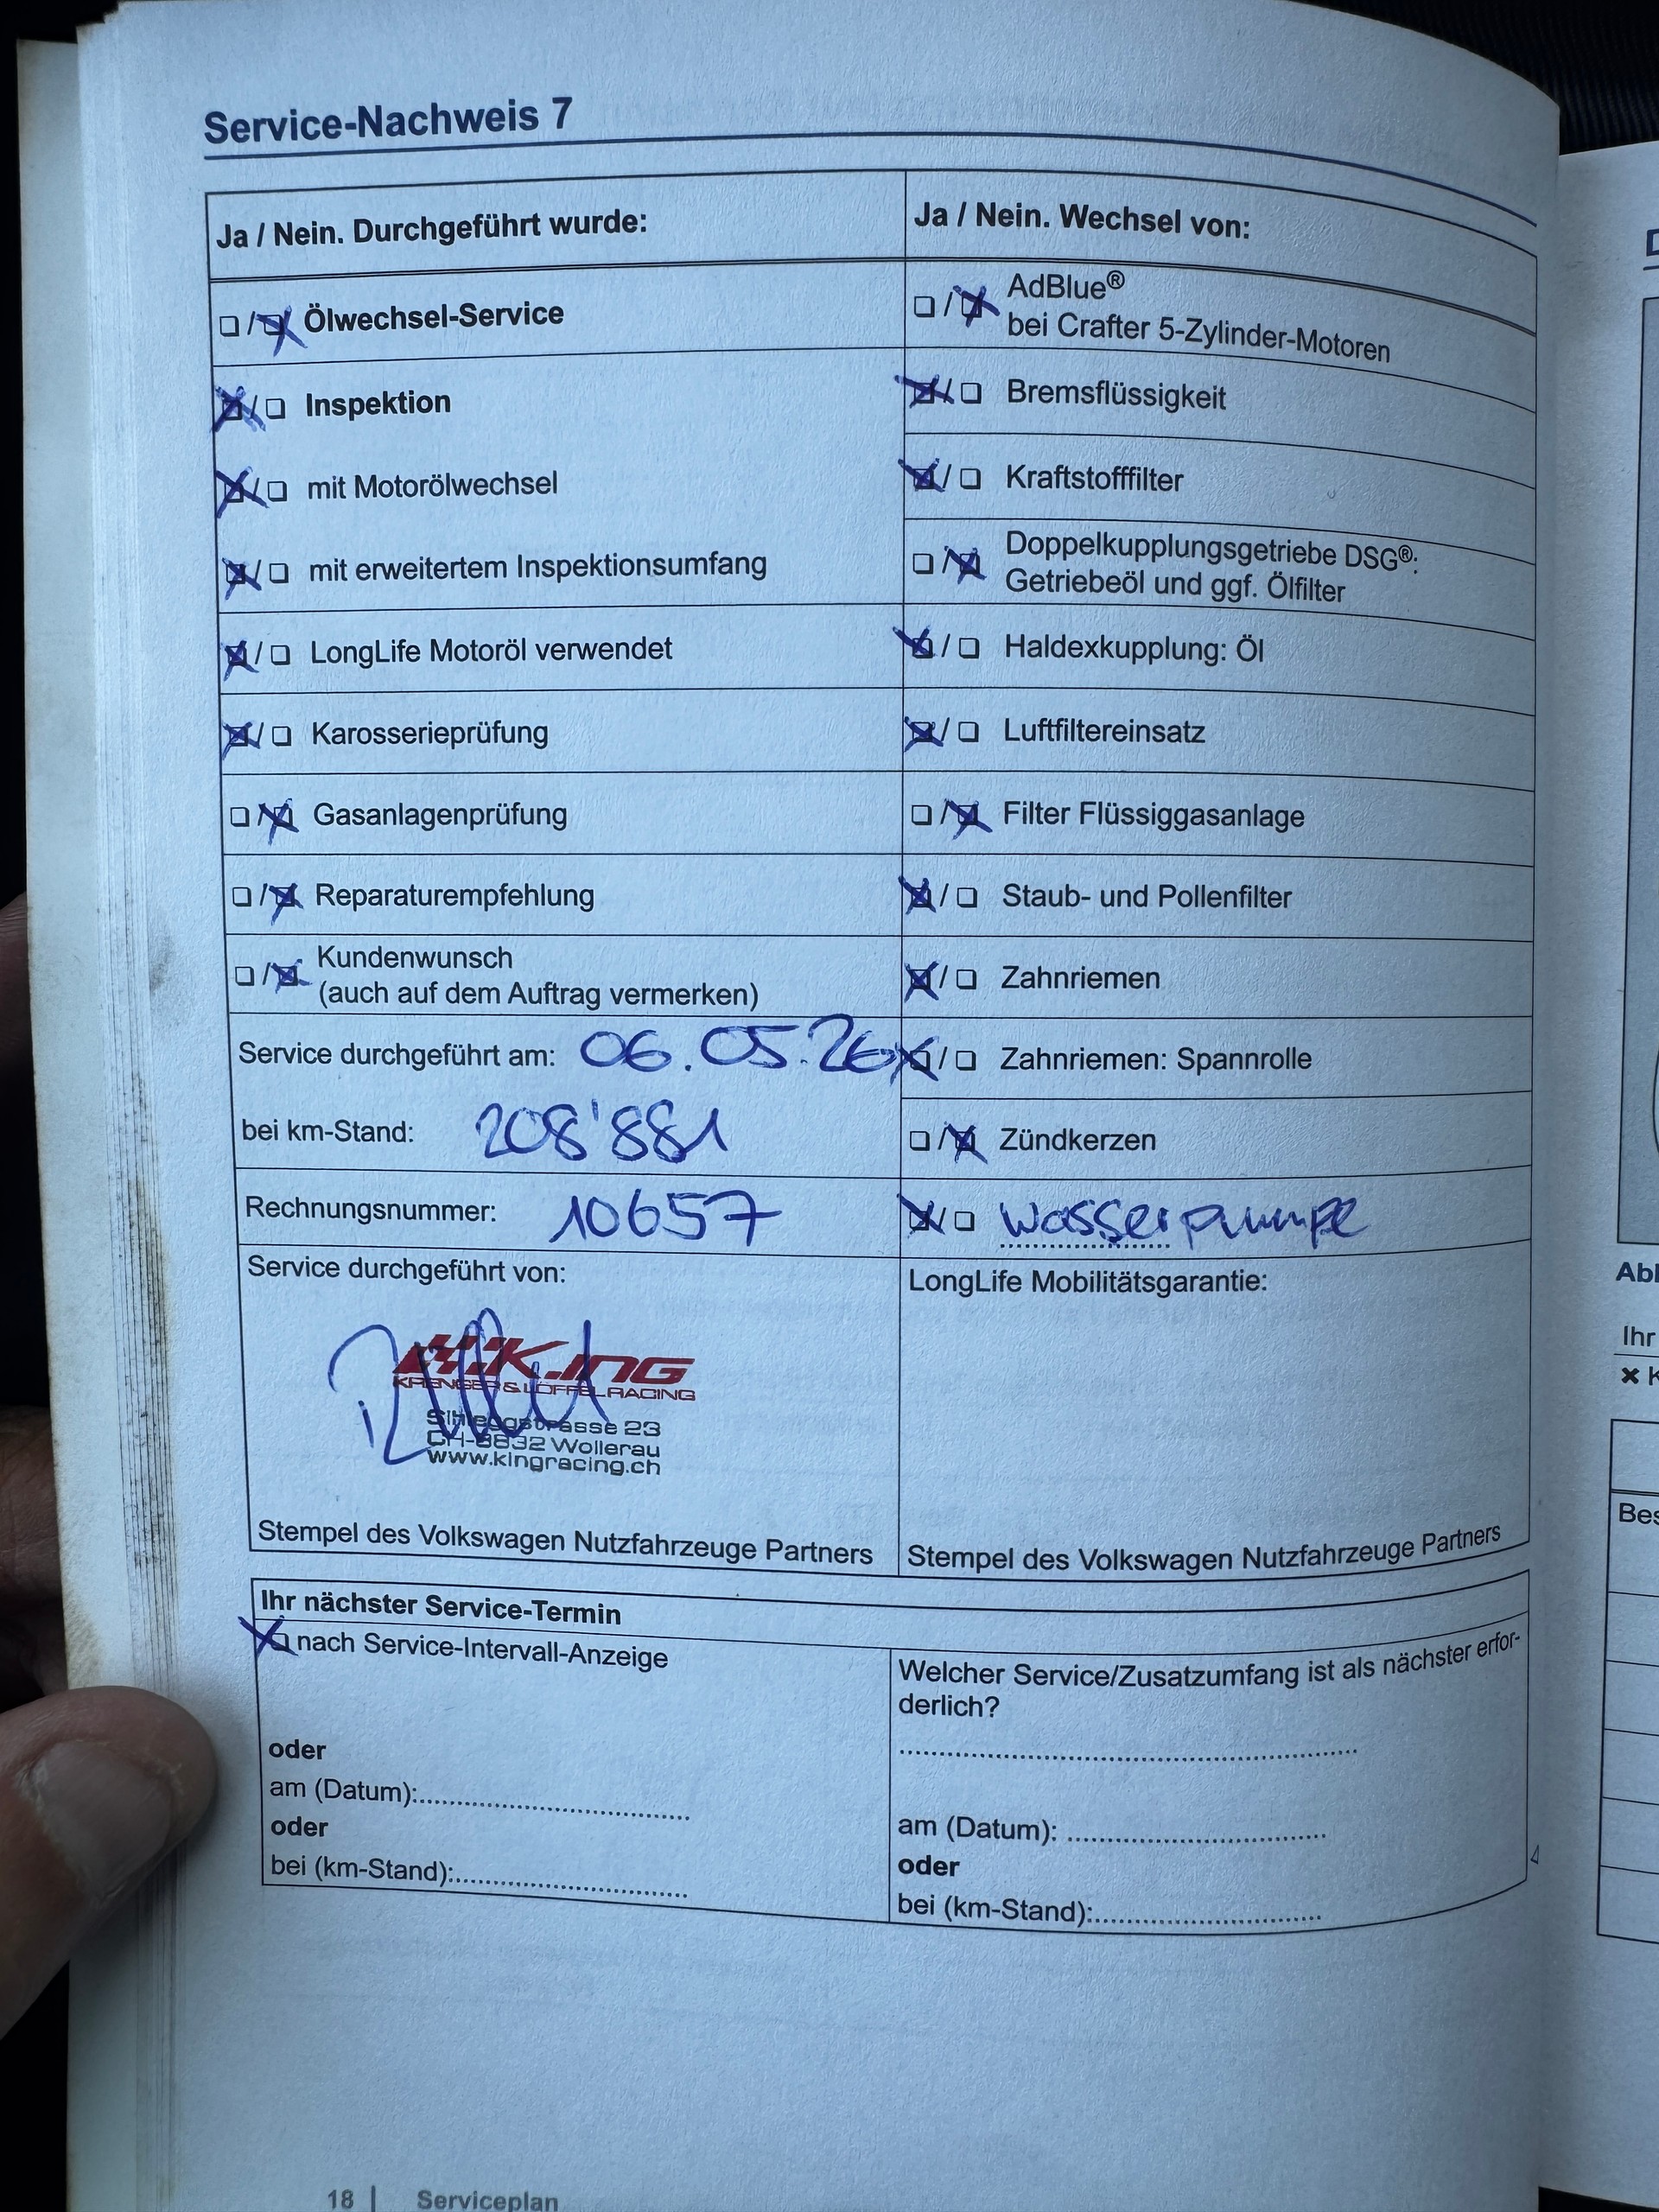 Service-Nachweis 7
Ja / Nein. Durchgeführt wurde:
❏ / ☒ Ölwechsel-Service
☒ / ❏ Inspektion
☒ / ❏ mit Motorölwechsel
☒ / ❏ mit erweitertem Inspektionsumfang
☒ / ❏ LongLife Motoröl verwendet
☒ / ❏ Karosserieprüfung
❏ / ☒ Gasanlagenprüfung
❏ / ☒ Reparaturempfehlung
❏ / ☒ Kundenwunsch
(auch auf dem Auftrag vermerken)
Service durchgeführt am: 06.05.26
bei km-Stand: 208'881
Rechnungsnummer: 10657
Service durchgeführt von:
KING
KRENGER & LÖFFEL RACING
Sihleggstrasse 23
CH-8832 Wollerau
www.kingracing.ch
Stempel des Volkswagen Nutzfahrzeuge Partners
Ja / Nein. Wechsel von:
❏ / ☒ AdBlue®
bei Crafter 5-Zylinder-Motoren
☒ / ❏ Bremsflüssigkeit
☒ / ❏ Kraftstofffilter
❏ / ☒ Doppelkupplungsgetriebe DSG®:
Getriebeöl und ggf. Ölfilter
☒ / ❏ Haldexkupplung: Öl
☒ / ❏ Luftfiltereinsatz
❏ / ☒ Filter Flüssiggasanlage
☒ / ❏ Staub- und Pollenfilter
☒ / ❏ Zahnriemen
☒ / ❏ Zahnriemen: Spannrolle
❏ / ☒ Zündkerzen
☒ / ❏ Wasserpumpe
LongLife Mobilitätsgarantie:
Stempel des Volkswagen Nutzfahrzeuge Partners
Ihr nächster Service-Termin
☒ nach Service-Intervall-Anzeige
oder
am (Datum):
oder
bei (km-Stand):
Welcher Service/Zusatzumfang ist als nächster erfor-
derlich?
am (Datum):
oder
bei (km-Stand):
18 | Serviceplan
Ihr
Bes